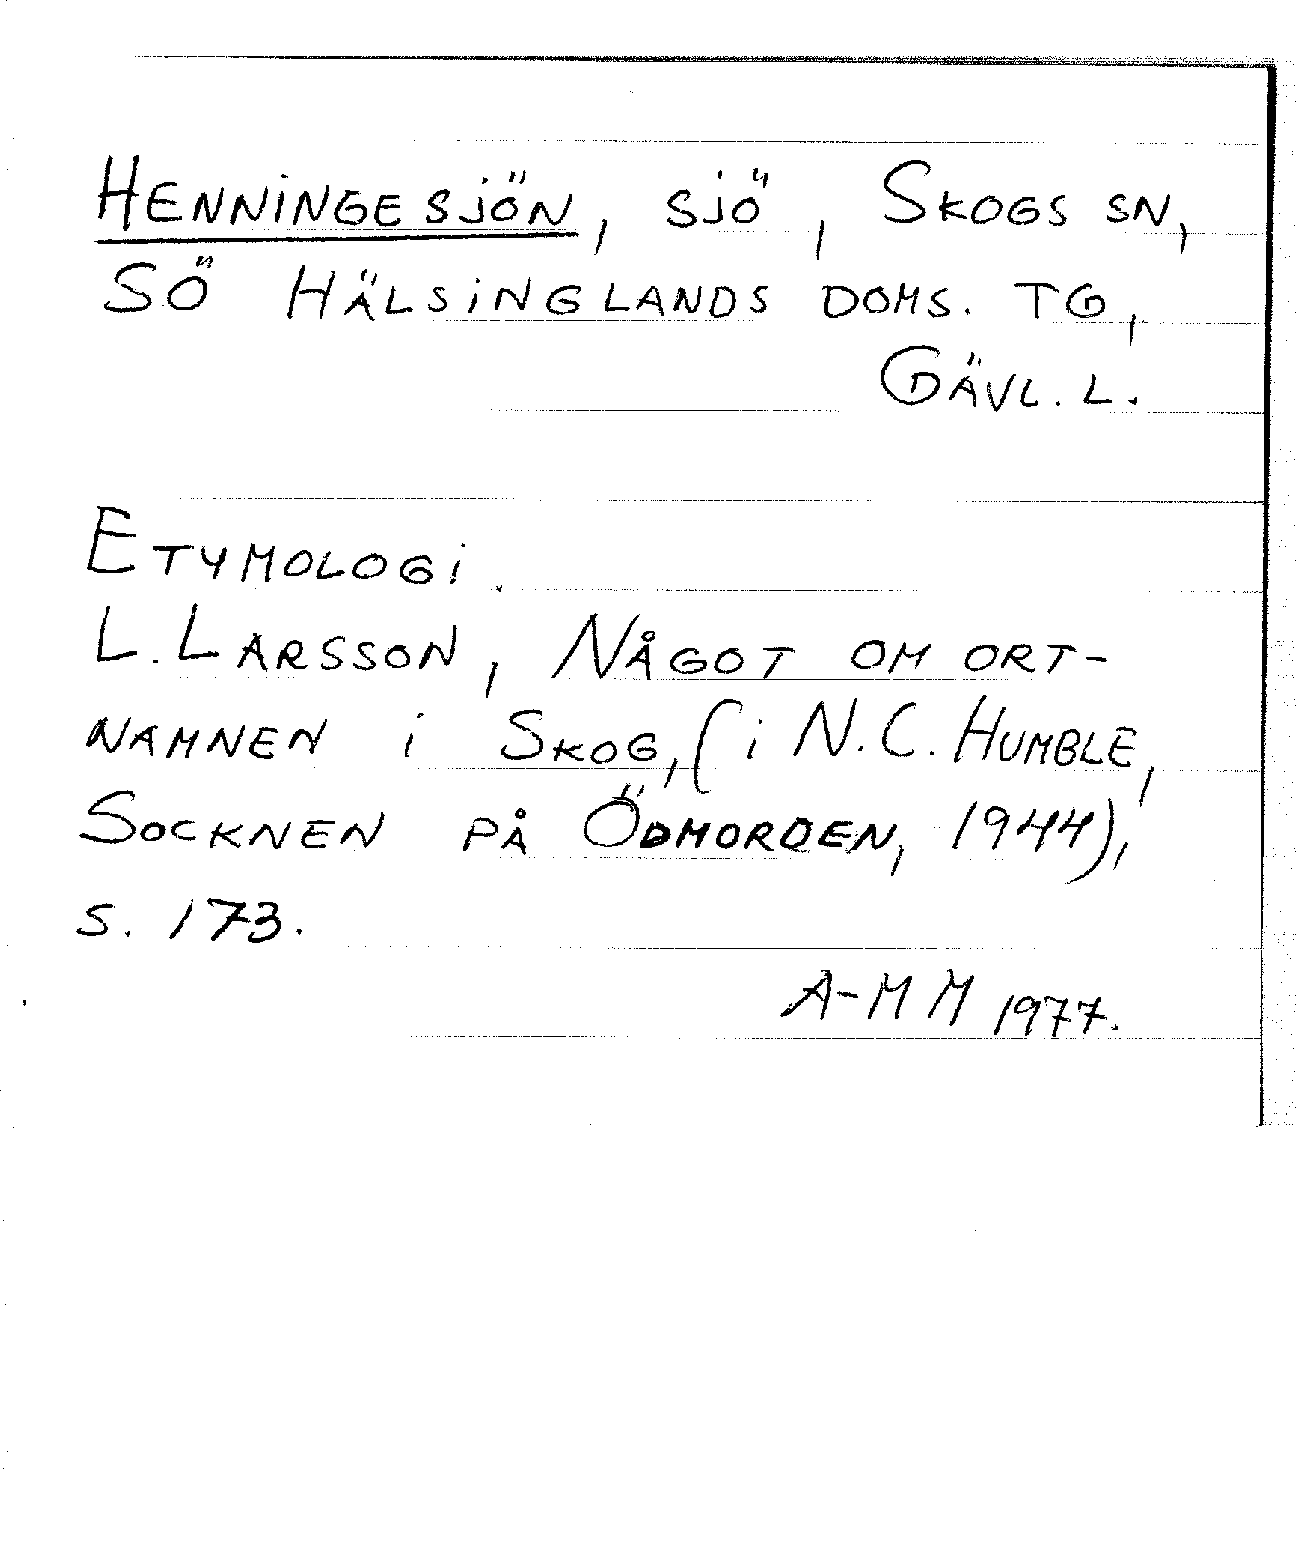 Henningesjön, sjö, Skogs sn,
Sö Hälsinglands doms. tg,
Gävl. l.
Etymologi.
L. Larsson, Något om ort-
namnen i Skog, (i N.C. Humble,
Socknen på Ödmorden, 1944),
s. 173.
A-M M 1977.